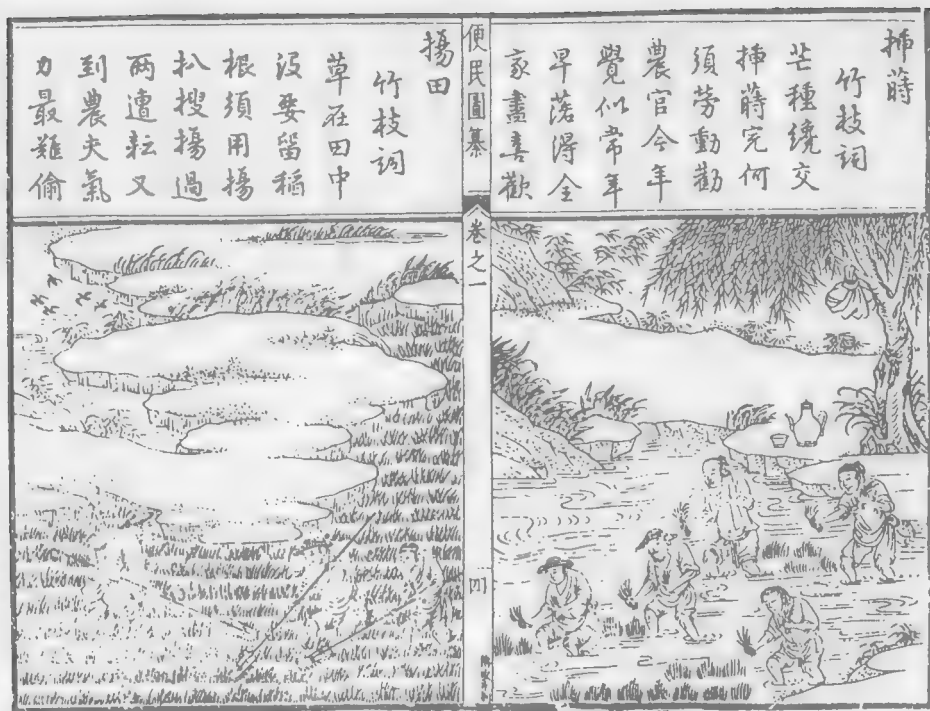 揷蒔
竹枝詞
芒種纔交
揷蒔完何
須勞動勸
農官今年
覺似常年
早落得全
家盡喜歡
便民圖纂
卷之一
四
摥田
竹枝詞
草在田中
没要留稻
根須用摥
扒搜摥過
兩遭耘又
到農夫氣
力最難偷